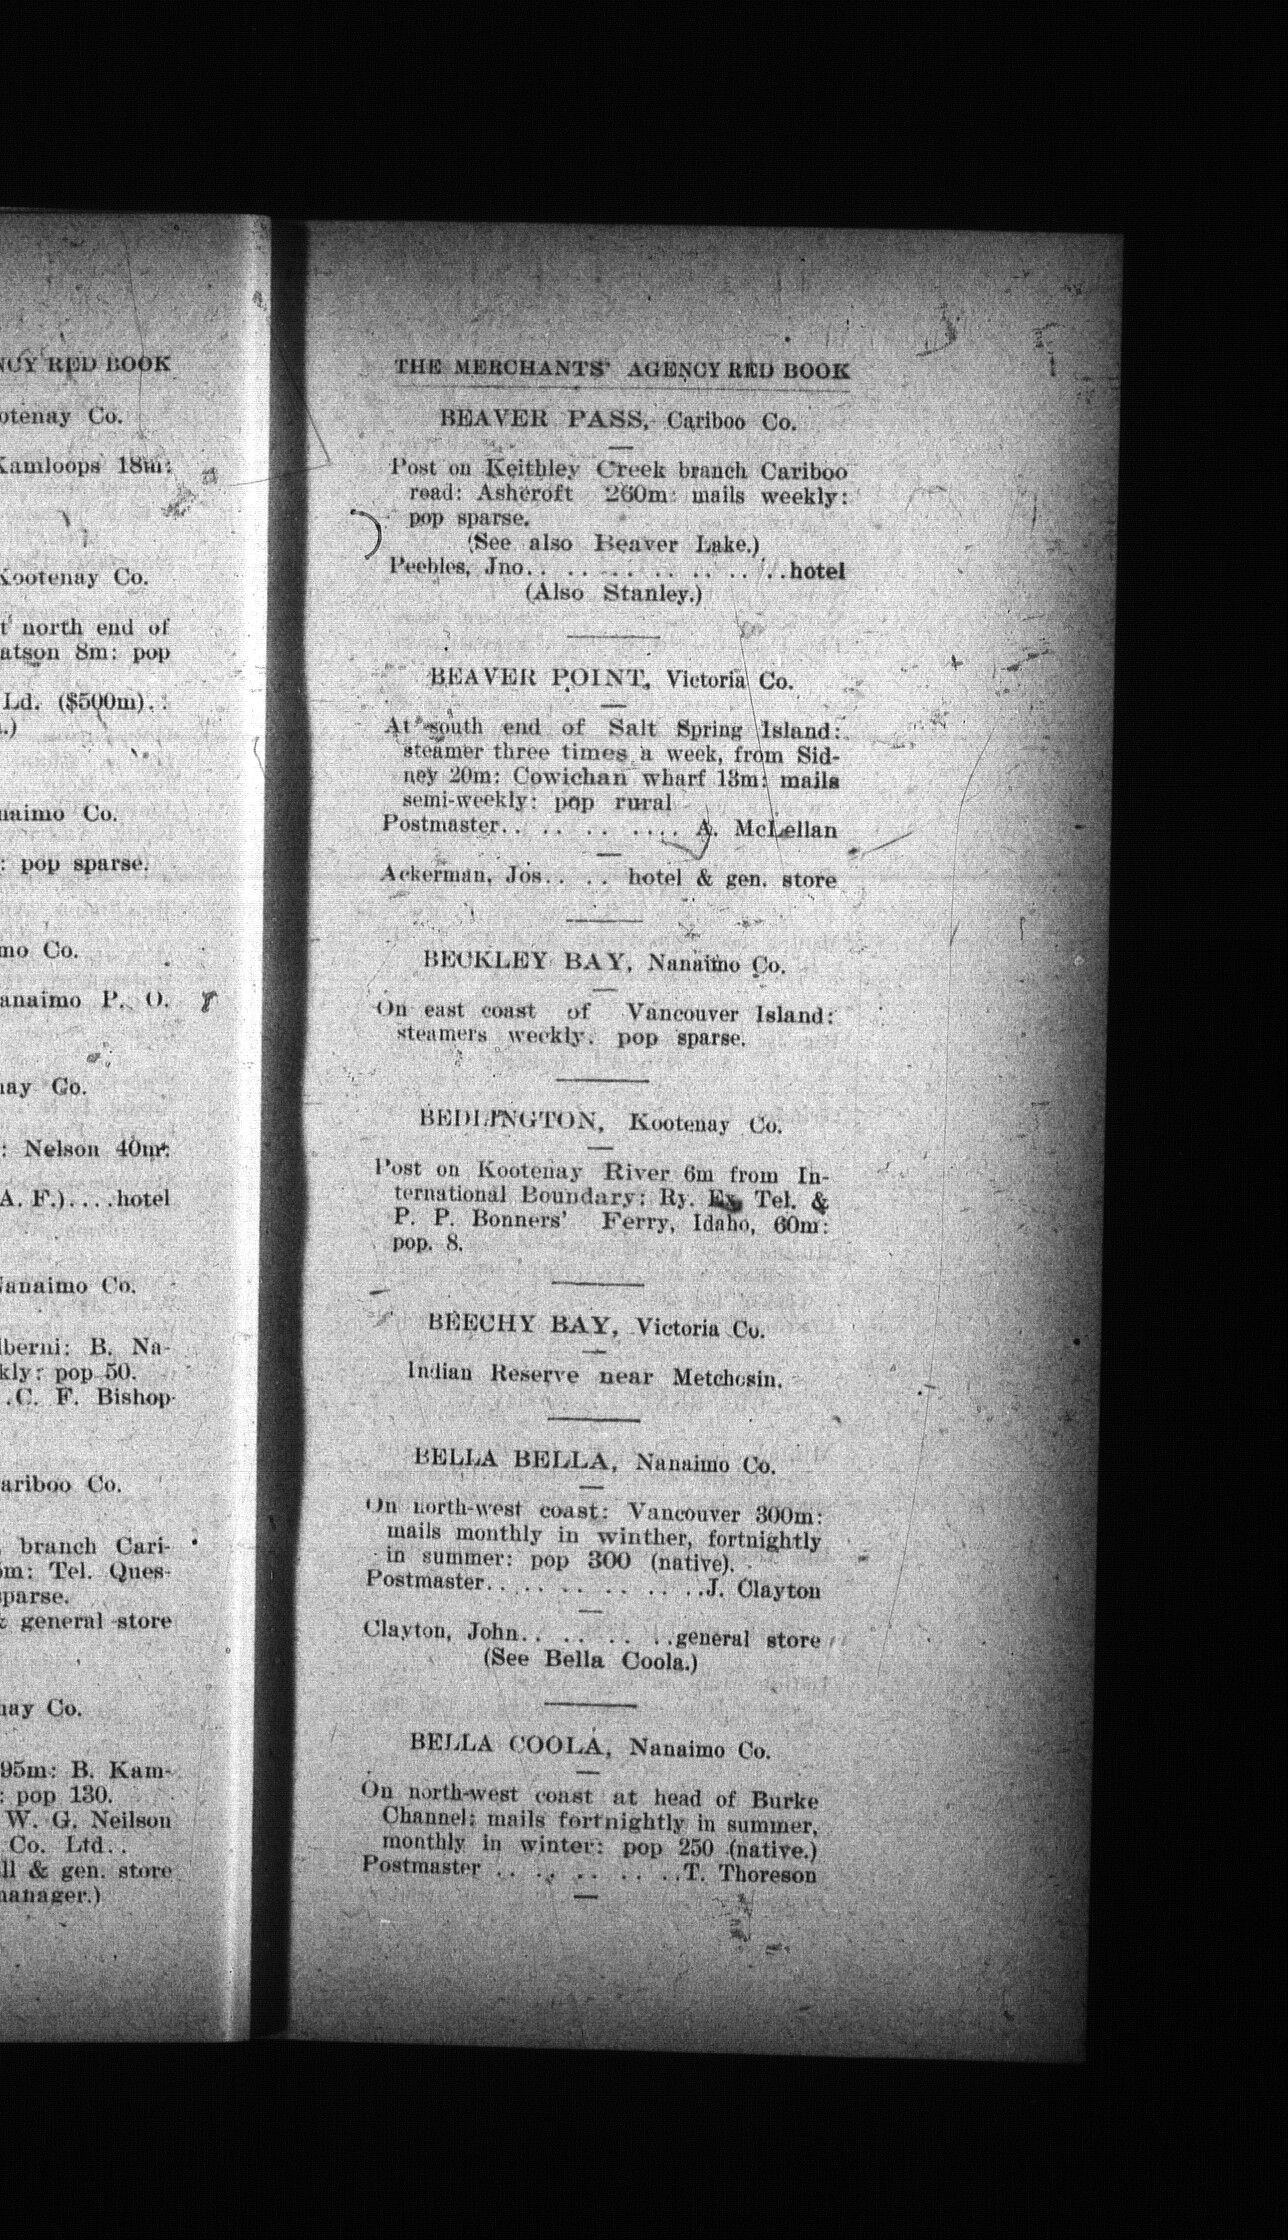 NCY RED BOOK
otenay Co.
Kamloops 18m:
Kootenay Co.
t north end of
atson 8m: pop
Ld. ($500m). :
.)
naimo Co.
: pop sparse.
mo Co.
anaimo P. O.
nay Co.
: Nelson 40m:
A. F.)....hotel
Nanaimo Co.
lberni: B. Na-
kly: pop 50.
.C. F. Bishop
ariboo Co.
branch Cari-
5m: Tel. Ques-
sparse.
& general store
nay Co.
95m: B. Kam-
: pop 130.
W. G. Neilson
Co. Ltd..
ll & gen. store
manager.)
THE MERCHANTS' AGENCY RED BOOK
BEAVER PASS, Cariboo Co.
Post on Keithley Creek branch Cariboo
road: Ashcroft 260m: mails weekly:
pop sparse.
(See also Beaver Lake.)
Peebles, Jno.. .. .. .. .. .. ..hotel
(Also Stanley.)
BEAVER POINT, Victoria Co.
At south end of Salt Spring Island:
steamer three times a week, from Sid-
ney 20m: Cowichan wharf 13m: mails
semi-weekly: pop rural
Postmaster.. .. .. .... A. McLellan
Ackerman, Jos.. .. hotel & gen. store
BECKLEY BAY, Nanaimo Co.
On east coast of Vancouver Island:
steamers weekly. pop sparse.
BEDLINGTON, Kootenay Co.
Post on Kootenay River 6m from In-
ternational Boundary: Ry. Ex Tel. &
P. P. Bonners' Ferry, Idaho, 60m:
pop. 8.
BEECHY BAY, Victoria Co.
Indian Reserve near Metchosin.
BELLA BELLA, Nanaimo Co.
On north-west coast: Vancouver 300m:
mails monthly in winther, fortnightly
in summer: pop 300 (native).
Postmaster.. .. .. .. .. ..J. Clayton
Clayton, John.. .. .. ..general store
(See Bella Coola.)
BELLA COOLA, Nanaimo Co.
On north-west coast at head of Burke
Channel: mails fortnightly in summer,
monthly in winter: pop 250 (native.)
Postmaster .. .. .. .. ..T. Thoreson